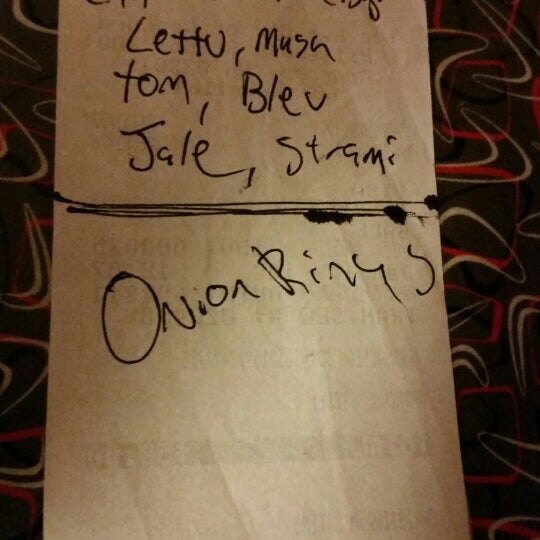 Lettu, Mush
tom, Bleu
Jale, Strami
Onion Rings